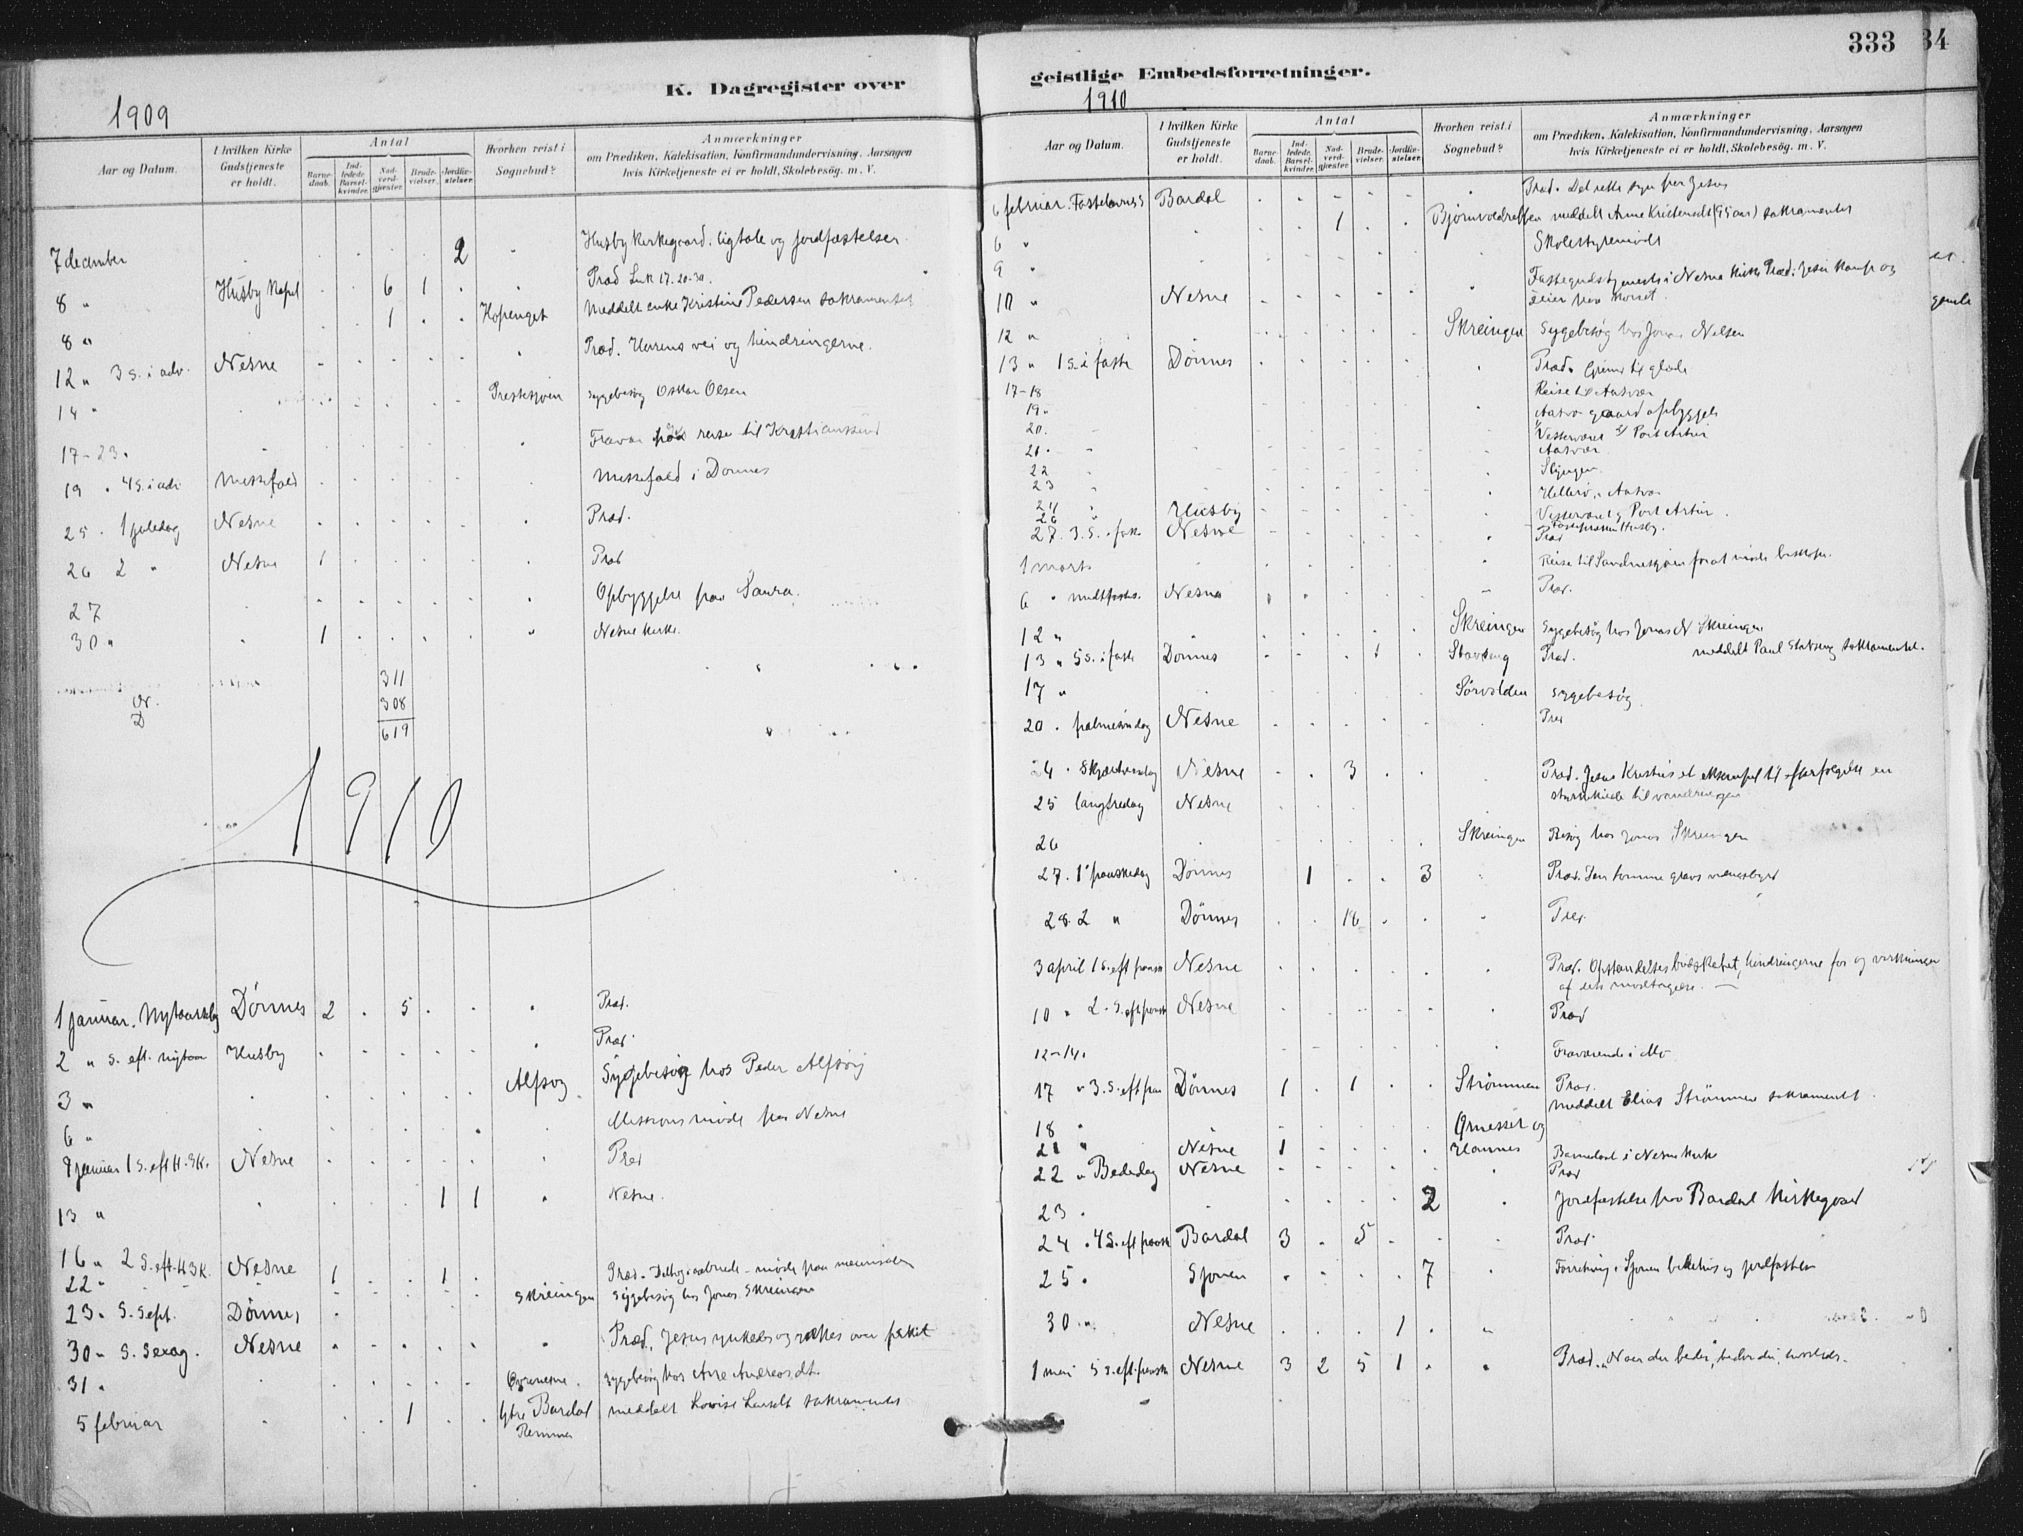 333 34
K. Dagregister over
1909
Aar og Datum.
I hvilken Kirke Gudstjeneste er holdt.
Antal
Barne-daab.
Ind-ledede Barsel-kvinder.
Nad-verd-gjester.
Brude-vielser.
Jordfæ-stelser.
Hvorhen reist i Sognebud?
Anmærkninger
om Prædiken, Katekisation, Konfirmandundervisning, Aarsagen
hvis Kirketjeneste ei er holdt, Skolebesøg. m. V.
7 december 2 Husby kirkegaard. ligtale og jordfæstelser.
8 " Husby Kapel 6 1 Præd Luk 17. 20-30.
8 " 1 Hopenget Meddelt enke Kristine Pedersen sakramentet
12 " 3 S. i adv. Nesne Præd. Herrens vei og hindringerne.
14 " Sygebesøg Oskar Olsen
17-23. reise til Kristianssund
19 " 4 S. i adv Messefald Messefald i Dønnes
25. 1 juledag Nesne Præd.
26 2 " Nesne 1 Præd
27 Opbyggelse paa Saura.
30 " 1 Nesne kirke.
N. 311
D 308
619
1910
1 januar. Nytaarsdag Dønnes 2 5 Præd.
2 " S. eft. nytaar Husby Præd.
3 " Alfsvog Sygebesøg hos Peder Alfsvog
6 " Missionsmøde paa Nesne
9 januar 1 S. eft H.3K. Nesne Præd
13 " 1 1 Nesne.
16 " 2 S. eft. H3K. Nesne 1 1 Præd.
22 " Skreingen Sygebesøg hos Jonas Skreingen
23 " S. Sept. Dønnes
30 " S. Sexag. Nesne Præd. Jesus ynkedes over folket
31 " Sygebesøg hos Ane Andreasdt.
5 februar 1 Ytre Bardal meddelt Lovise sakramentet
geistlige Embedsforretninger.
1910
Aar og Datum.
I hvilken Kirke Gudstjeneste er holdt.
Antal
Barne-daab.
Ind-ledede Barsel-kvinder.
Nad-verd-gjester.
Brude-vielser.
Jordfæ-stelser.
Hvorhen reist i Sognebud?
Anmærkninger
om Prædiken, Katekisation, Konfirmandundervisning, Aarsagen
hvis Kirketjeneste ei er holdt, Skolebesøg. m. V.
6 februar. Fastelavnss Bardal Præd. Det rette syn paa Jesus
6 " 1 meddelt Anne Kristensdt (95 aar) sakramentet
9 " Skolestyremøde
10 " Nesne Fastegudstjeneste i Nesne kirke Præd: Jesu kamp og
seier paa korset.
12 " Skreingen Sygebesøg hos Jonas Nilsen
13 " 1 S. i faste Dønnes Præd. Grund til glæde
17-18 Reise til Aasvær
19 " opbyggelse
20. Vesterværet Port Artur
21. " Aasvær
22 Slyngen.
23 Aasvær
24 " Husby Vesterværet og Port Artur.
26 "
27. 3. S. i faste Nesne Præd
1 marts Reise til Sandnessjøen for at møde biskopen.
6 " midtfaste. Nesne Præd.
12 " Skreingen Sygebesøg hos Jonas N Skreingen
13 " 5 S. i faste Dønnes 1 Stavseng Præd. meddelt Paul Stavseng sakramentet.
17 " Sygebesøg
20 . palmesøndag Nesne Præd
24 . Skjærtorsdag Nesne 3 Præd. Jesus Kristus et eksempel til efterfølgelse en
styrkekilde til vandringen
25 langfredag Nesne
26 Skreingen Besøg hos Jonas Skreingen
27. 1 paaskedag Dønnes 1 3 Præd. Den tomme gravs vidnesbyrd
28. 2 " Dønnes 16 Præd.
3 april 1 S. eft paaske Nesne Præd. Opstandelsesbudskabet, hindringerne for og virkningen
af dets modtagelse.
10 " 2. S. eft paaske Nesne Præd
12-14. Fraværende i Mo
17 " 3. S. eft paa Dønnes 1 1 Strømmen Præd.
meddelt Elias Strømmen sakramentet.
18 "
21 " Nesne 1 Barnedaab i Nesne kirke
22 " Bededag Nesne Præd
23 . 2 Jordfæstelse paa Bardal kirkegaard
24 . 4 S. eft paaske Bardal 3 5 Præd.
25 . Sjonen 7 Forretning i Sjonen bedehus og jordfæstelse
30 " Nesne 1
1 mai 5 S. eft. paaske Nesne 3 2 5 1 Præd. Naar du beder,